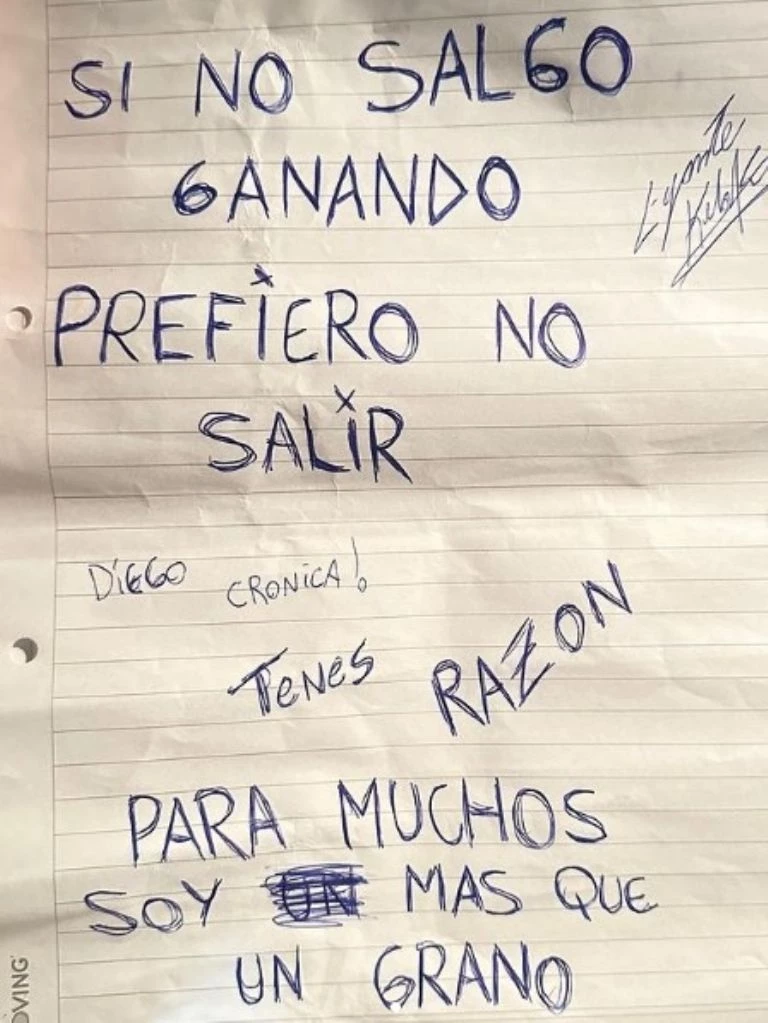 SI NO SALGO
GANANDO
PREFiERO NO
SALiR
DiEGO CRONiCA!
TeNeS RAZON
PARA MUCHOS
SOY UN MAS QUE
UN GRANO
OVING